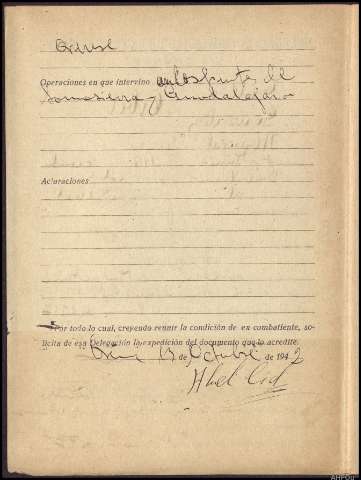 Orense
Operaciones en que intervino en los frentes de
Somosierra y Guadalajara
Aclaraciones
Por todo lo cual, creyendo reunir la condición de ex combatiente, so-
licita de esa Delegación la expedición del documento que lo acredite.
Orense 13 de Octubre de 1942
Abel Cid
AHPOU